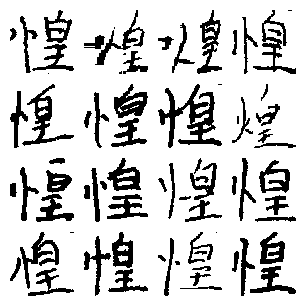 惶煌煌惶
惶惶惶煌
惶惶惶惶
惶惶惶惶